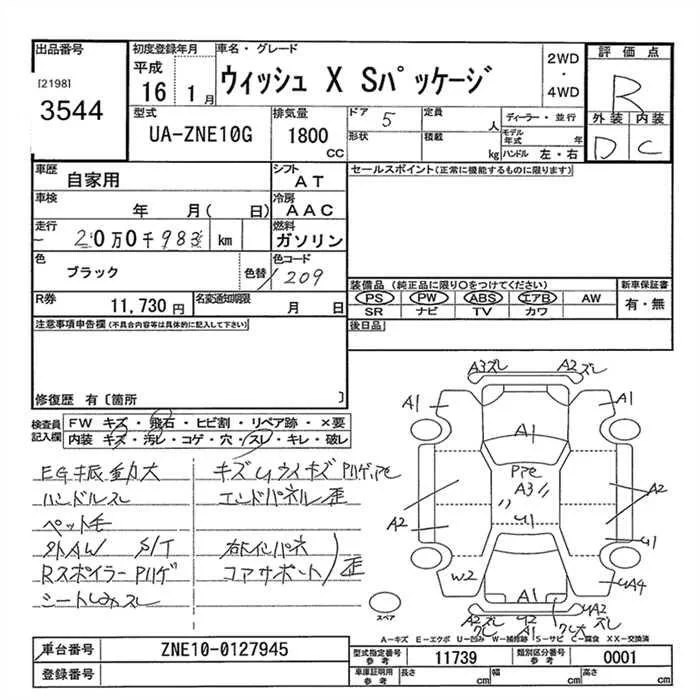 出品番号
[2198]
3544
初度登録年月
平成
16 1月
車名・グレード
ウィッシュ X Sパッケージ
2WD
・
4WD
評価点
R
外装 内装
D C
型式
UA-ZNE10G
排気量
1800
CC
ドア 5
形状
定員
人
積載
kg
ディーラー・並行
モデル年式 年
ハンドル 左・右
車歴
自家用
シフト
AT
車検
年 月( 日)
冷房
AAC
走行
20万0千983 km
燃料
ガソリン
色
ブラック
色替
色コード
209
R券
11,730円
名変通知期限
月 日
セールスポイント(正常に機能するものに限ります)
装備品(純正品に限り〇をつけてください)
PS PW ABS エアB AW
SR ナビ TV カワ
新車保証書
有・無
後日品
注意事項申告欄(不具合内容等は具体的に記入して下さい)
修復歴 有〔箇所 〕
検査員
記入欄
FW キズ・飛石・ヒビ割・リペア跡・×要
内装 キズ・汚レ・コゲ・穴・スレ・キレ・破レ
EG振動大
ハンドルスレ
ペット毛
外AW S/T
Rスポイラー Pハゲ
シートしみスレ
キズUワイキズPハゲ,Pe
エンドパネル歪
右インパネ
コアサポート/歪
A3ズレ A2ズレ
A1 A1
A1
PPe
A3
U1
A2 A2
U1
W2 UA4
A1
A2ズレ U2 UA2ズレ
クレ A1 ク大
スペア
A-キズ E-エクボ U-凹み W-補修跡 S-サビ C-腐食 XX-交換済
車台番号
ZNE10-0127945
登録番号
型式指定番号
参考
11739
類別区分番号
参考
0001
車庫証明用
参考
長さ cm 幅 cm 高さ cm